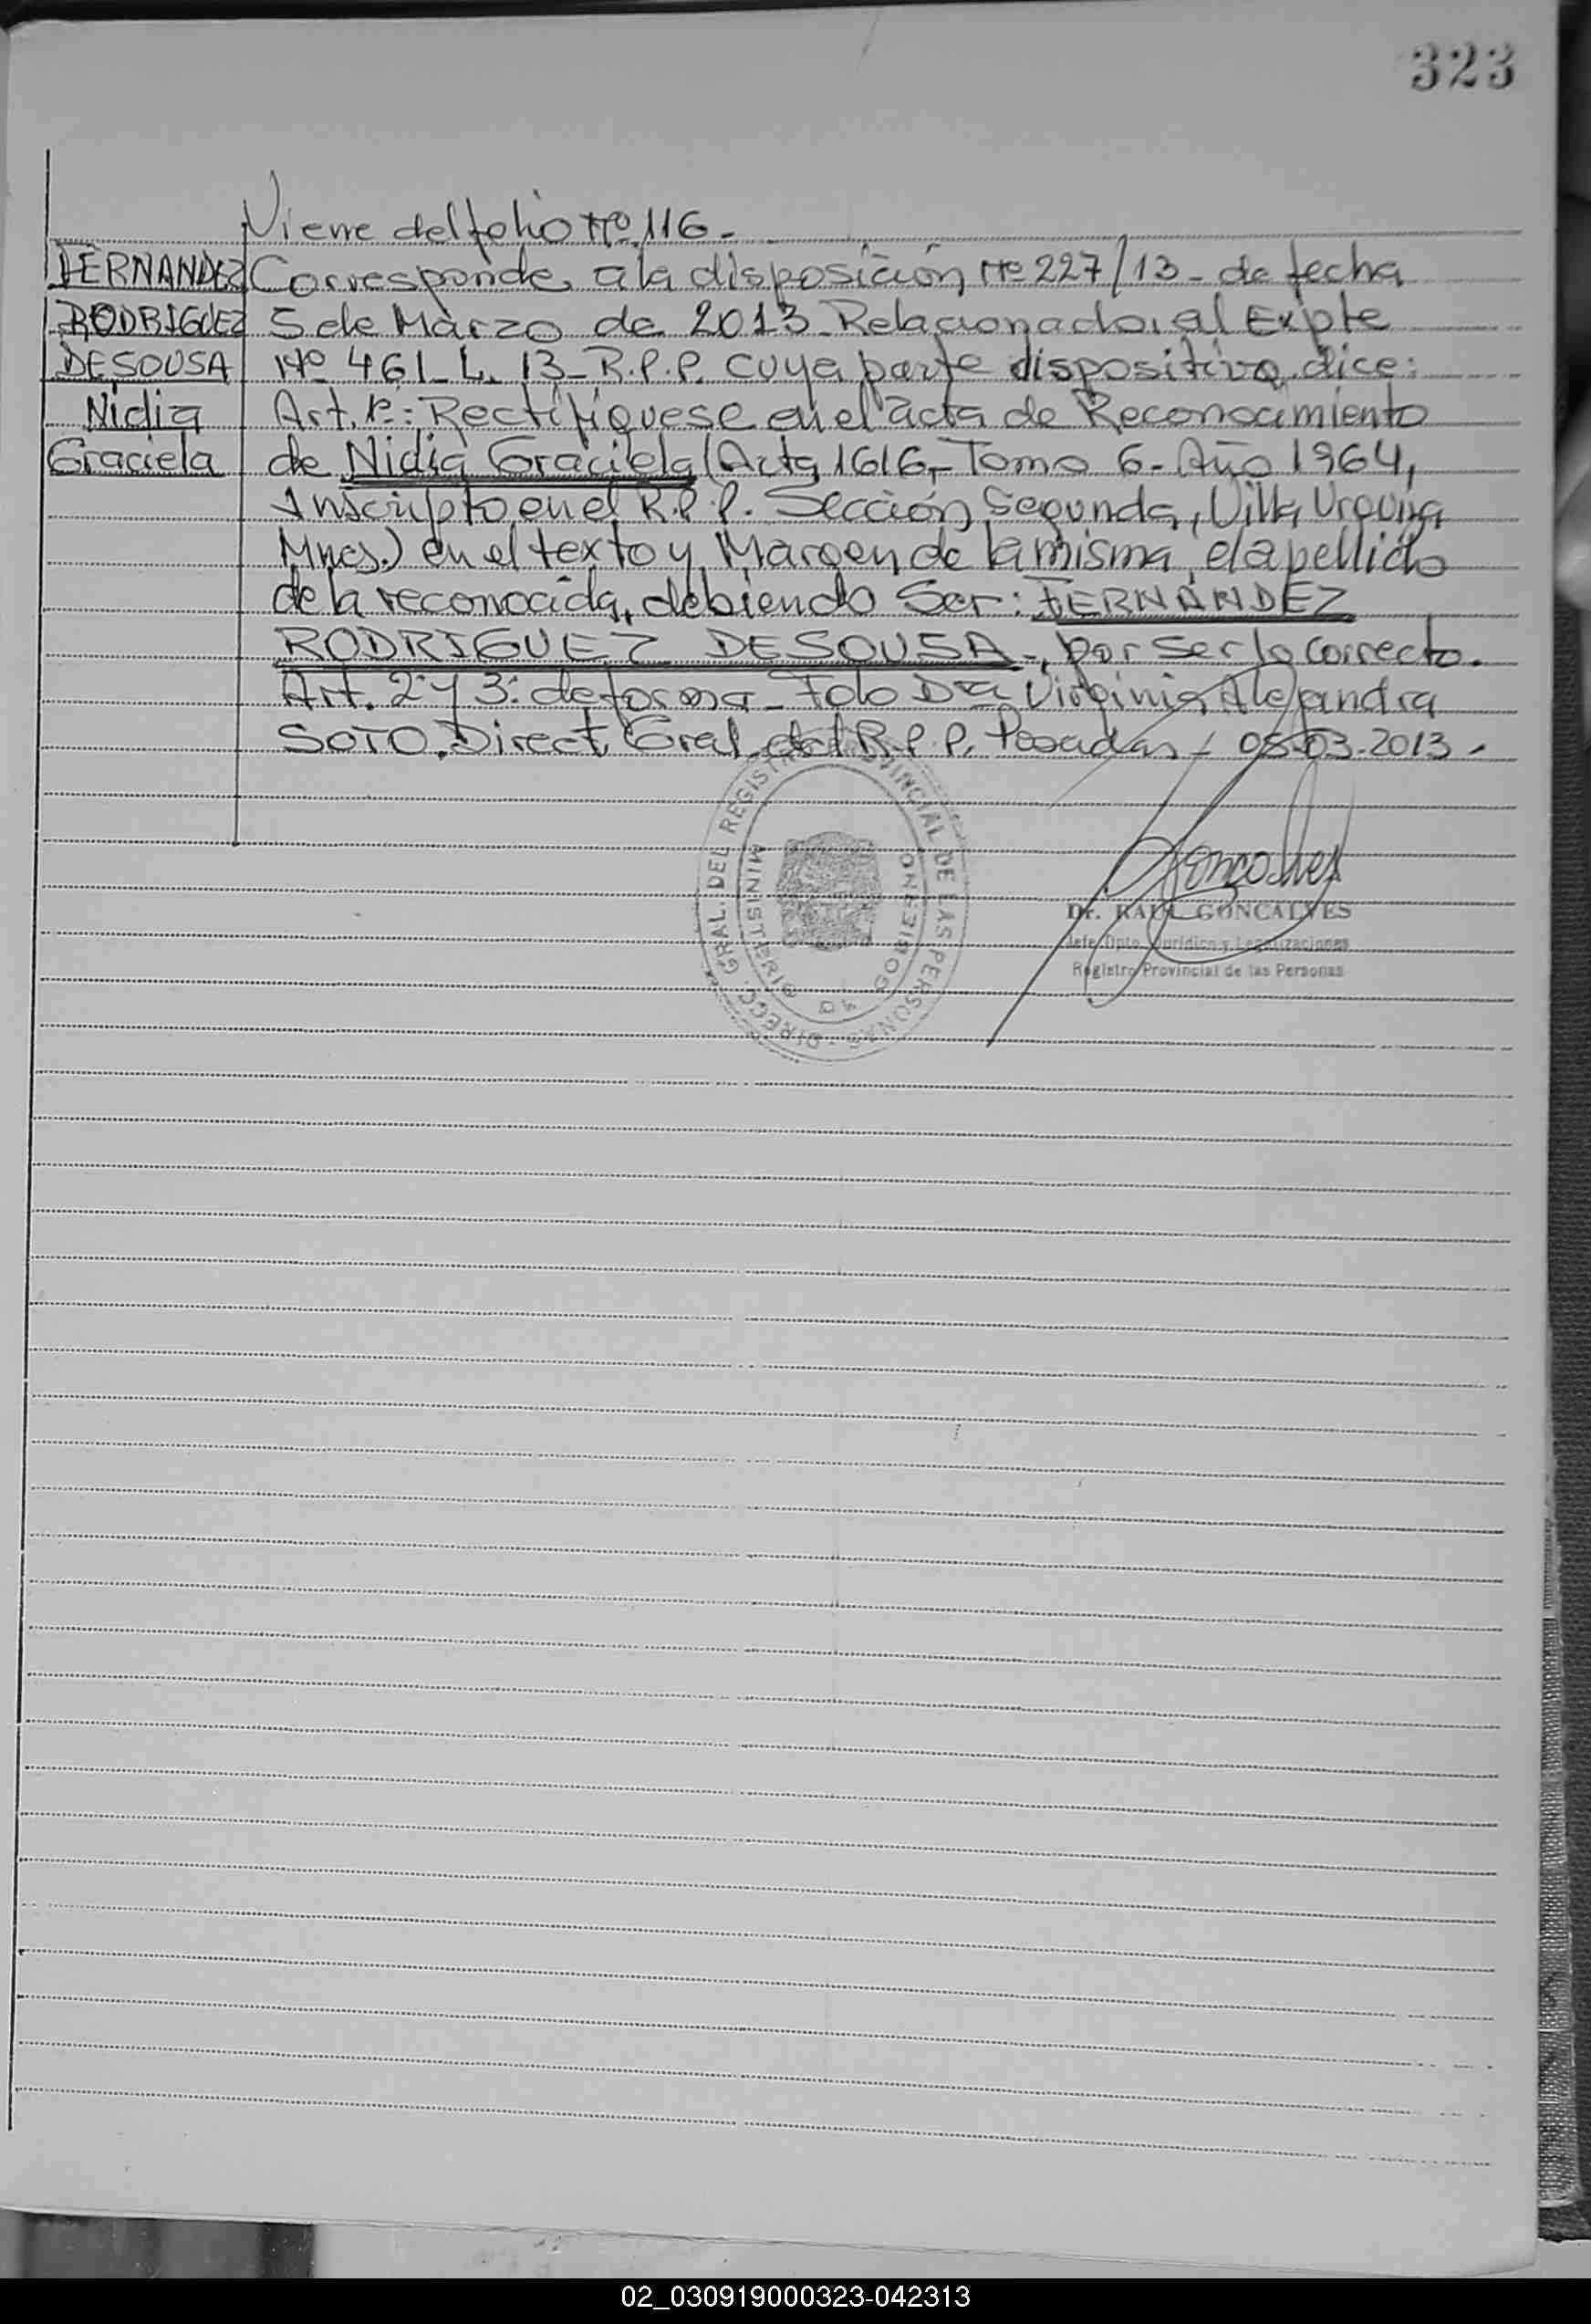 323
Viene del folio Nº 116 -
FERNANDEZ
RODRIGUEZ
DESOUSA
Nidia
Graciela
Corresponde a la disposición Nº 227/13 - de fecha
5 de Marzo de 2013 - Relacionado al Expte
Nº 461 - L. 13 - R.P.P. cuya parte dispositiva dice:
Art. 1º: Rectifiquese en el acta de Reconocimiento
de Nidia Graciela (Acta 1616 - Tomo 6 - Año 1964,
Inscripto en el R.P.P. Sección Segunda, Villa Urquiza
Mnes.) en el texto y Margen de la misma, el apellido
de la reconocida, debiendo Ser: FERNÁNDEZ
RODRIGUEZ DESOUSA -, por ser lo correcto.
Art. 2º y 3º: de forma - Fdo Dra Virginia Alejandra
SOTO. Direct. Gral. del R.P.P. Posadas - 05-03-2013 -
DIRECC. GRAL. DEL REGISTRO PROVINCIAL DE LAS PERSONAS
MINISTERIO DE GOBIERNO
Goncalves
Dr. RAUL GONCALVES
Jefe Dpto. Jurídico y Legalizaciones
Registro Provincial de las Personas
02_030919000323-042313